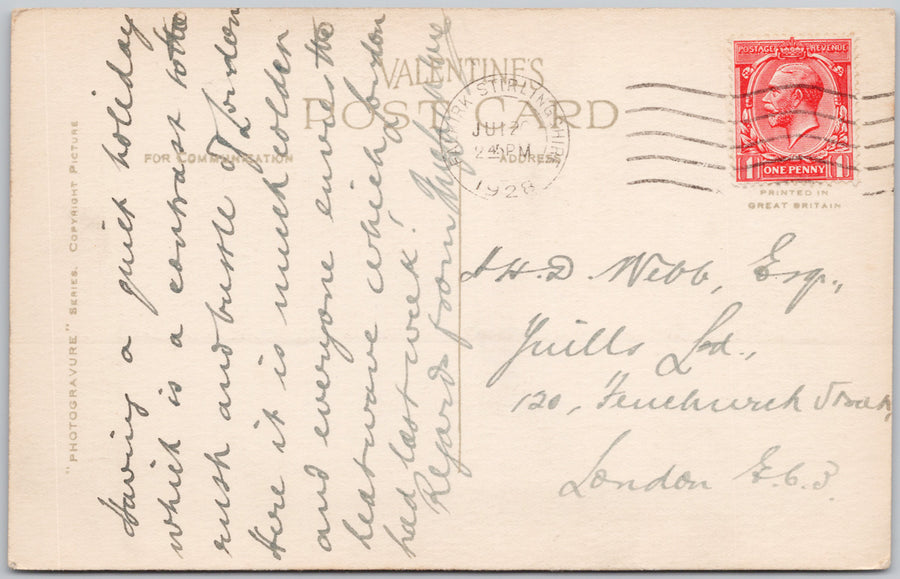 VALENTINE'S
POST CARD
FOR COMMUNICATION
ADDRESS
"PHOTOGRAVURE" SERIES. COPYRIGHT PICTURE
Having a quiet holiday
which is a contrast to the
rush and bustle of London
Here it is much colder
and everyone envies the
heatwave which London
had last week!
Regards from
FALKIRK STIRLINGSHIRE
JUL
2 45 PM
1928
POSTAGE REVENUE
1 ONE PENNY 1
PRINTED IN
GREAT BRITAIN
H. D. Webb, Esq.,
Ld.,
120, Fenchurch Street,
London E.C.3.